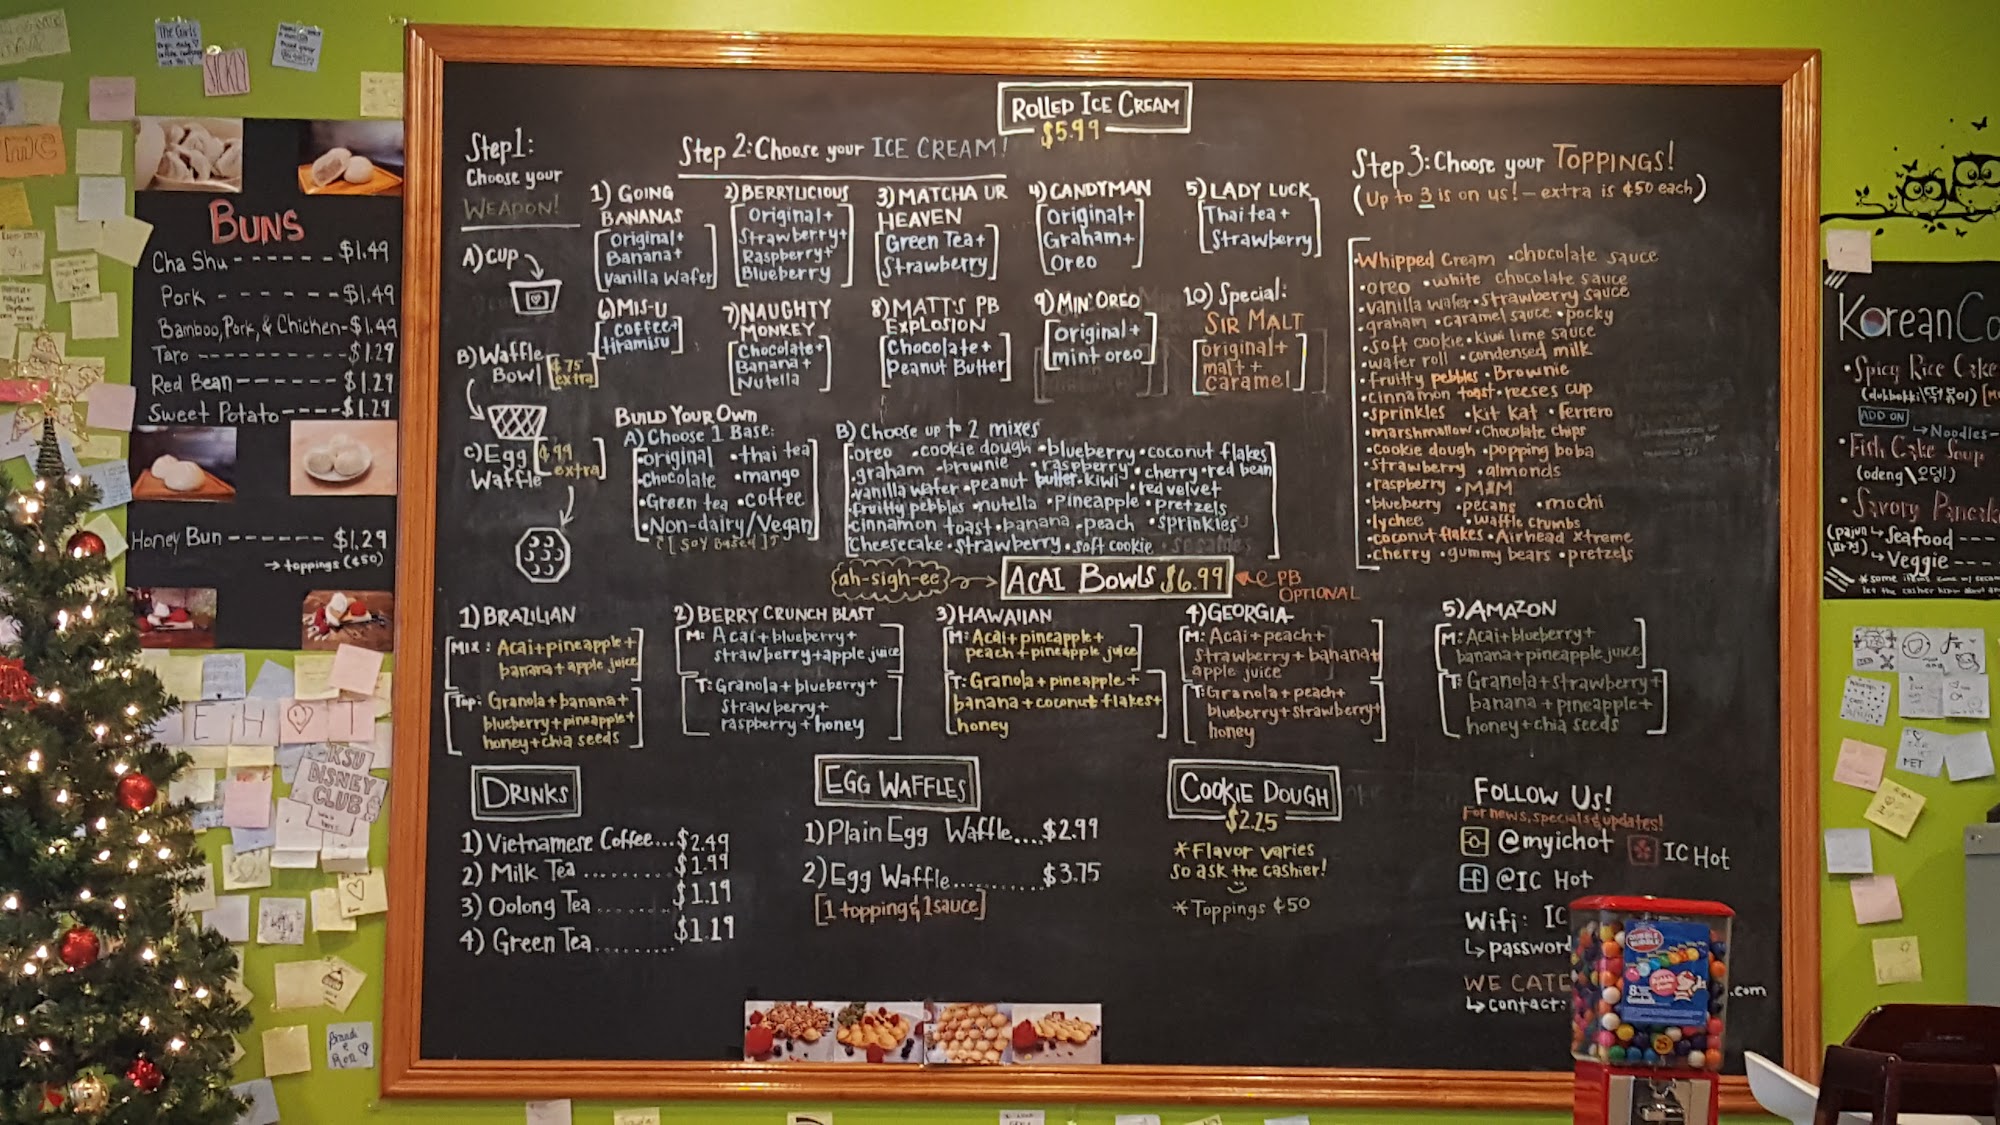 The Girls
NICKLY
me
BUNS
Cha Shu ------ $1.49
Pork - - - - - - - $1.49
Bamboo, Pork, & Chicken - $1.49
Taro ---------- $1.29
Red Bean ------ $1.29
Sweet Potato ---- $1.29
Honey Bun ------ $1.29
→ toppings (¢50)
E H ♡ T
KSU
DISNEY
CLUB
ROLLED ICE CREAM
$5.99
Step 1:
Choose your
WEAPON!
A) CUP
B) Waffle
Bowl [¢75
extra]
C) Egg
Waffle [¢99
extra]
Step 2: Choose your ICE CREAM!
1) GOING
BANANAS
[original+
Banana+
Vanilla Wafer]
2) BERRYLICIOUS
[original+
Strawberry+
Raspberry+
Blueberry]
3) MATCHA UR
HEAVEN
[Green Tea+
Strawberry]
4) CANDYMAN
[original+
Graham+
Oreo]
5) LADY LUCK
[Thai tea+
Strawberry]
6) MIS-U
[coffee+
tiramisu]
7) NAUGHTY
MONKEY
[Chocolate+
Banana+
Nutella]
8) MATT'S PB
EXPLOSION
[Chocolate+
Peanut Butter]
9) MIN'OREO
[original+
mint oreo]
10) Special:
SIR MALT
[original+
malt+
caramel]
BUILD YOUR OWN
A) Choose 1 Base:
•original •thai tea
•chocolate •mango
•Green tea •coffee
•Non-dairy/Vegan
[SOY BASED]
B) Choose up to 2 mixes
•oreo •cookie dough •blueberry •coconut flakes
•graham •brownie •raspberry •cherry •red bean
•vanilla wafer •peanut butter •kiwi •red velvet
•fruitty pebbles •nutella •pineapple •pretzels
•cinnamon toast •banana •peach •sprinkles
•cheesecake •strawberry •soft cookie
Step 3: Choose your TOPPINGS!
(Up to 3 is on us! - extra is ¢50 each)
•Whipped Cream •chocolate sauce
•oreo •white chocolate sauce
•vanilla wafer •strawberry sauce
•graham •caramel sauce •pocky
•soft cookie •kiwi lime sauce
•wafer roll •condensed milk
•fruitty pebbles •Brownie
•cinnamon toast •reeses cup
•sprinkles •kit kat •ferrero
•marshmallow •chocolate chips
•cookie dough •popping boba
•strawberry •almonds
•raspberry •M&M
•blueberry •pecans •mochi
•lychee •waffle crumbs
•coconut flakes •Airhead xtreme
•cherry •gummy bears •pretzels
ah-sigh-ee
ACAI BOWLS $6.99
PB
OPTIONAL
1) BRAZILIAN
[Mix: Acai+pineapple+
banana+apple juice]
[Top: Granola+banana+
blueberry+pineapple+
honey+chia seeds]
2) BERRY CRUNCH BLAST
[M: Acai+blueberry+
strawberry+apple juice]
[T: Granola+blueberry+
strawberry+
raspberry+honey]
3) HAWAIIAN
[M: Acai+pineapple+
peach+pineapple juice]
[T: Granola+pineapple+
banana+coconut flakes+
honey]
4) GEORGIA
[M: Acai+peach+
strawberry+banana+
apple juice]
[T: Granola+peach+
blueberry+strawberry+
honey]
5) AMAZON
[M: Acai+blueberry+
banana+pineapple juice]
[T: Granola+strawberry+
banana+pineapple+
honey+chia seeds]
DRINKS
1) Vietnamese Coffee...$2.49
2) Milk Tea ......... $1.99
3) Oolong Tea ....... $1.19
4) Green Tea ........ $1.19
EGG WAFFLES
1) Plain Egg Waffle....$2.99
2) Egg Waffle..........$3.75
[1 topping & 1 sauce]
COOKIE DOUGH
$2.25
*Flavor varies
so ask the cashier!
*Toppings ¢50
FOLLOW US!
For news, specials & updates!
@myichot
IC Hot
@IC Hot
Wifi: IC
↳password
WE CATE
↳contact:
.com
DUBBLE
BUBBLE
Korean Co
•Spicy Rice Cake
(dukbokki\떡볶이)
ADD ON
↳Noodles-
•Fish Cake Soup
(odeng\오뎅)
•Savory Pancake
(pajun
\파전)
↳Seafood ---
↳Veggie ----
*some items come w/
let the cashier know about